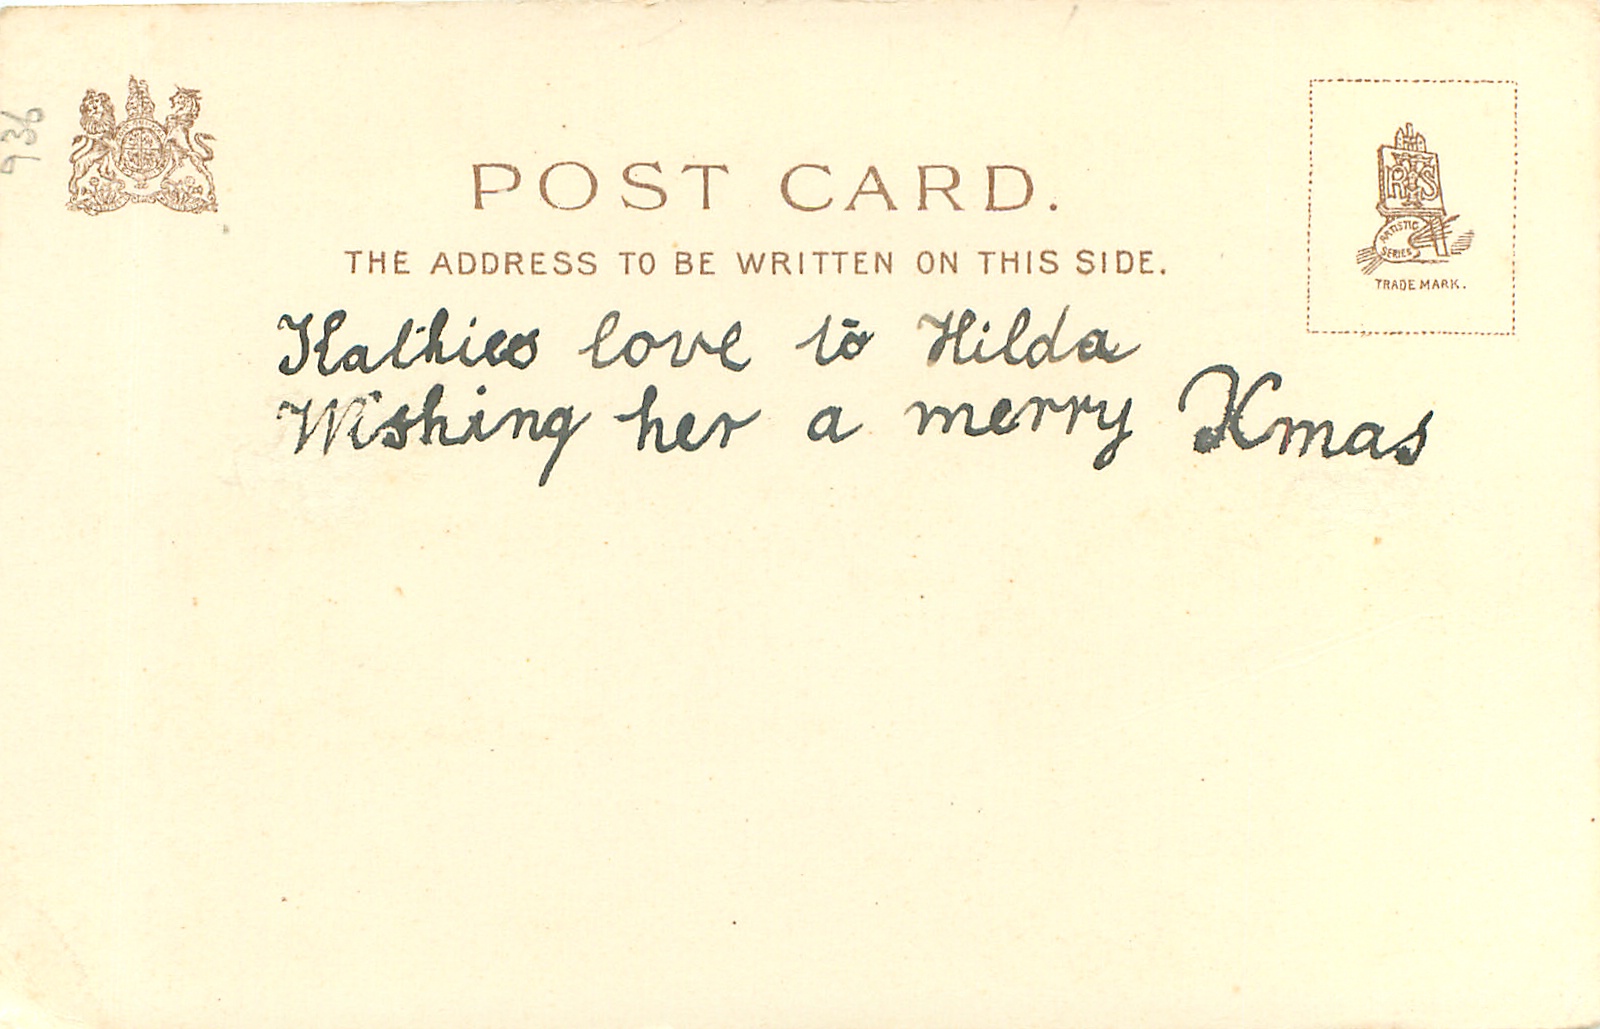 936
POST CARD.
THE ADDRESS TO BE WRITTEN ON THIS SIDE.
RTS
ARTISTIC
SERIES
TRADE MARK.
Kathies love to Hilda
Wishing her a merry Xmas